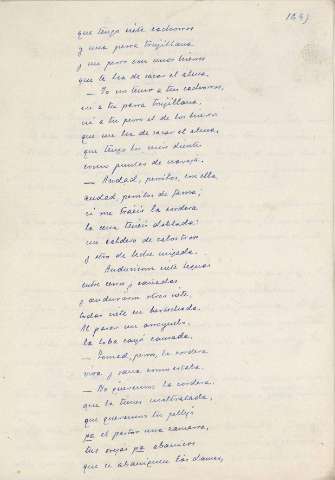 que tengo siete cachorros
y una perra trujillana
y un perro con unos hierros
que le ha de sacar el alma.
— Yo no temo a tus cachorros,
ni a tu perra trujillana,
ni a tu perro el de los hierros
que me ha de sacar el alma,
que tengo los mis dientes
como puntas de navaja.
— Andad, perritos, con ella
andad, perritos de fama;
si me traéis la cordera
la cena tenéis doblada:
un caldero de calostros
y otro de leche migada.
Anduvieron siete leguas
entre cerros y cañadas
y anduvieron otras siete,
todas siete en barbechada.
Al pasar un arroyuelo
la loba cayó cansada.
— Tomad, perros, la cordera
viva y sana como estaba.
— No queremos la cordera
que la tienes maltratada,
que queremos tu pelleja
pa el pastor una zamarra,
tus orejas pa abanicos
que se abaniquen las damas,